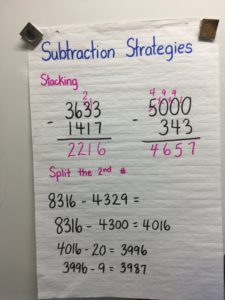 Subtraction Strategies
Stacking
2 1
3633
- 1417
2216
4 9 9 1
5000
- 343
4657
Split the 2nd #
8316 - 4329 =
8316 - 4300 = 4016
4016 - 20 = 3996
3996 - 9 = 3987